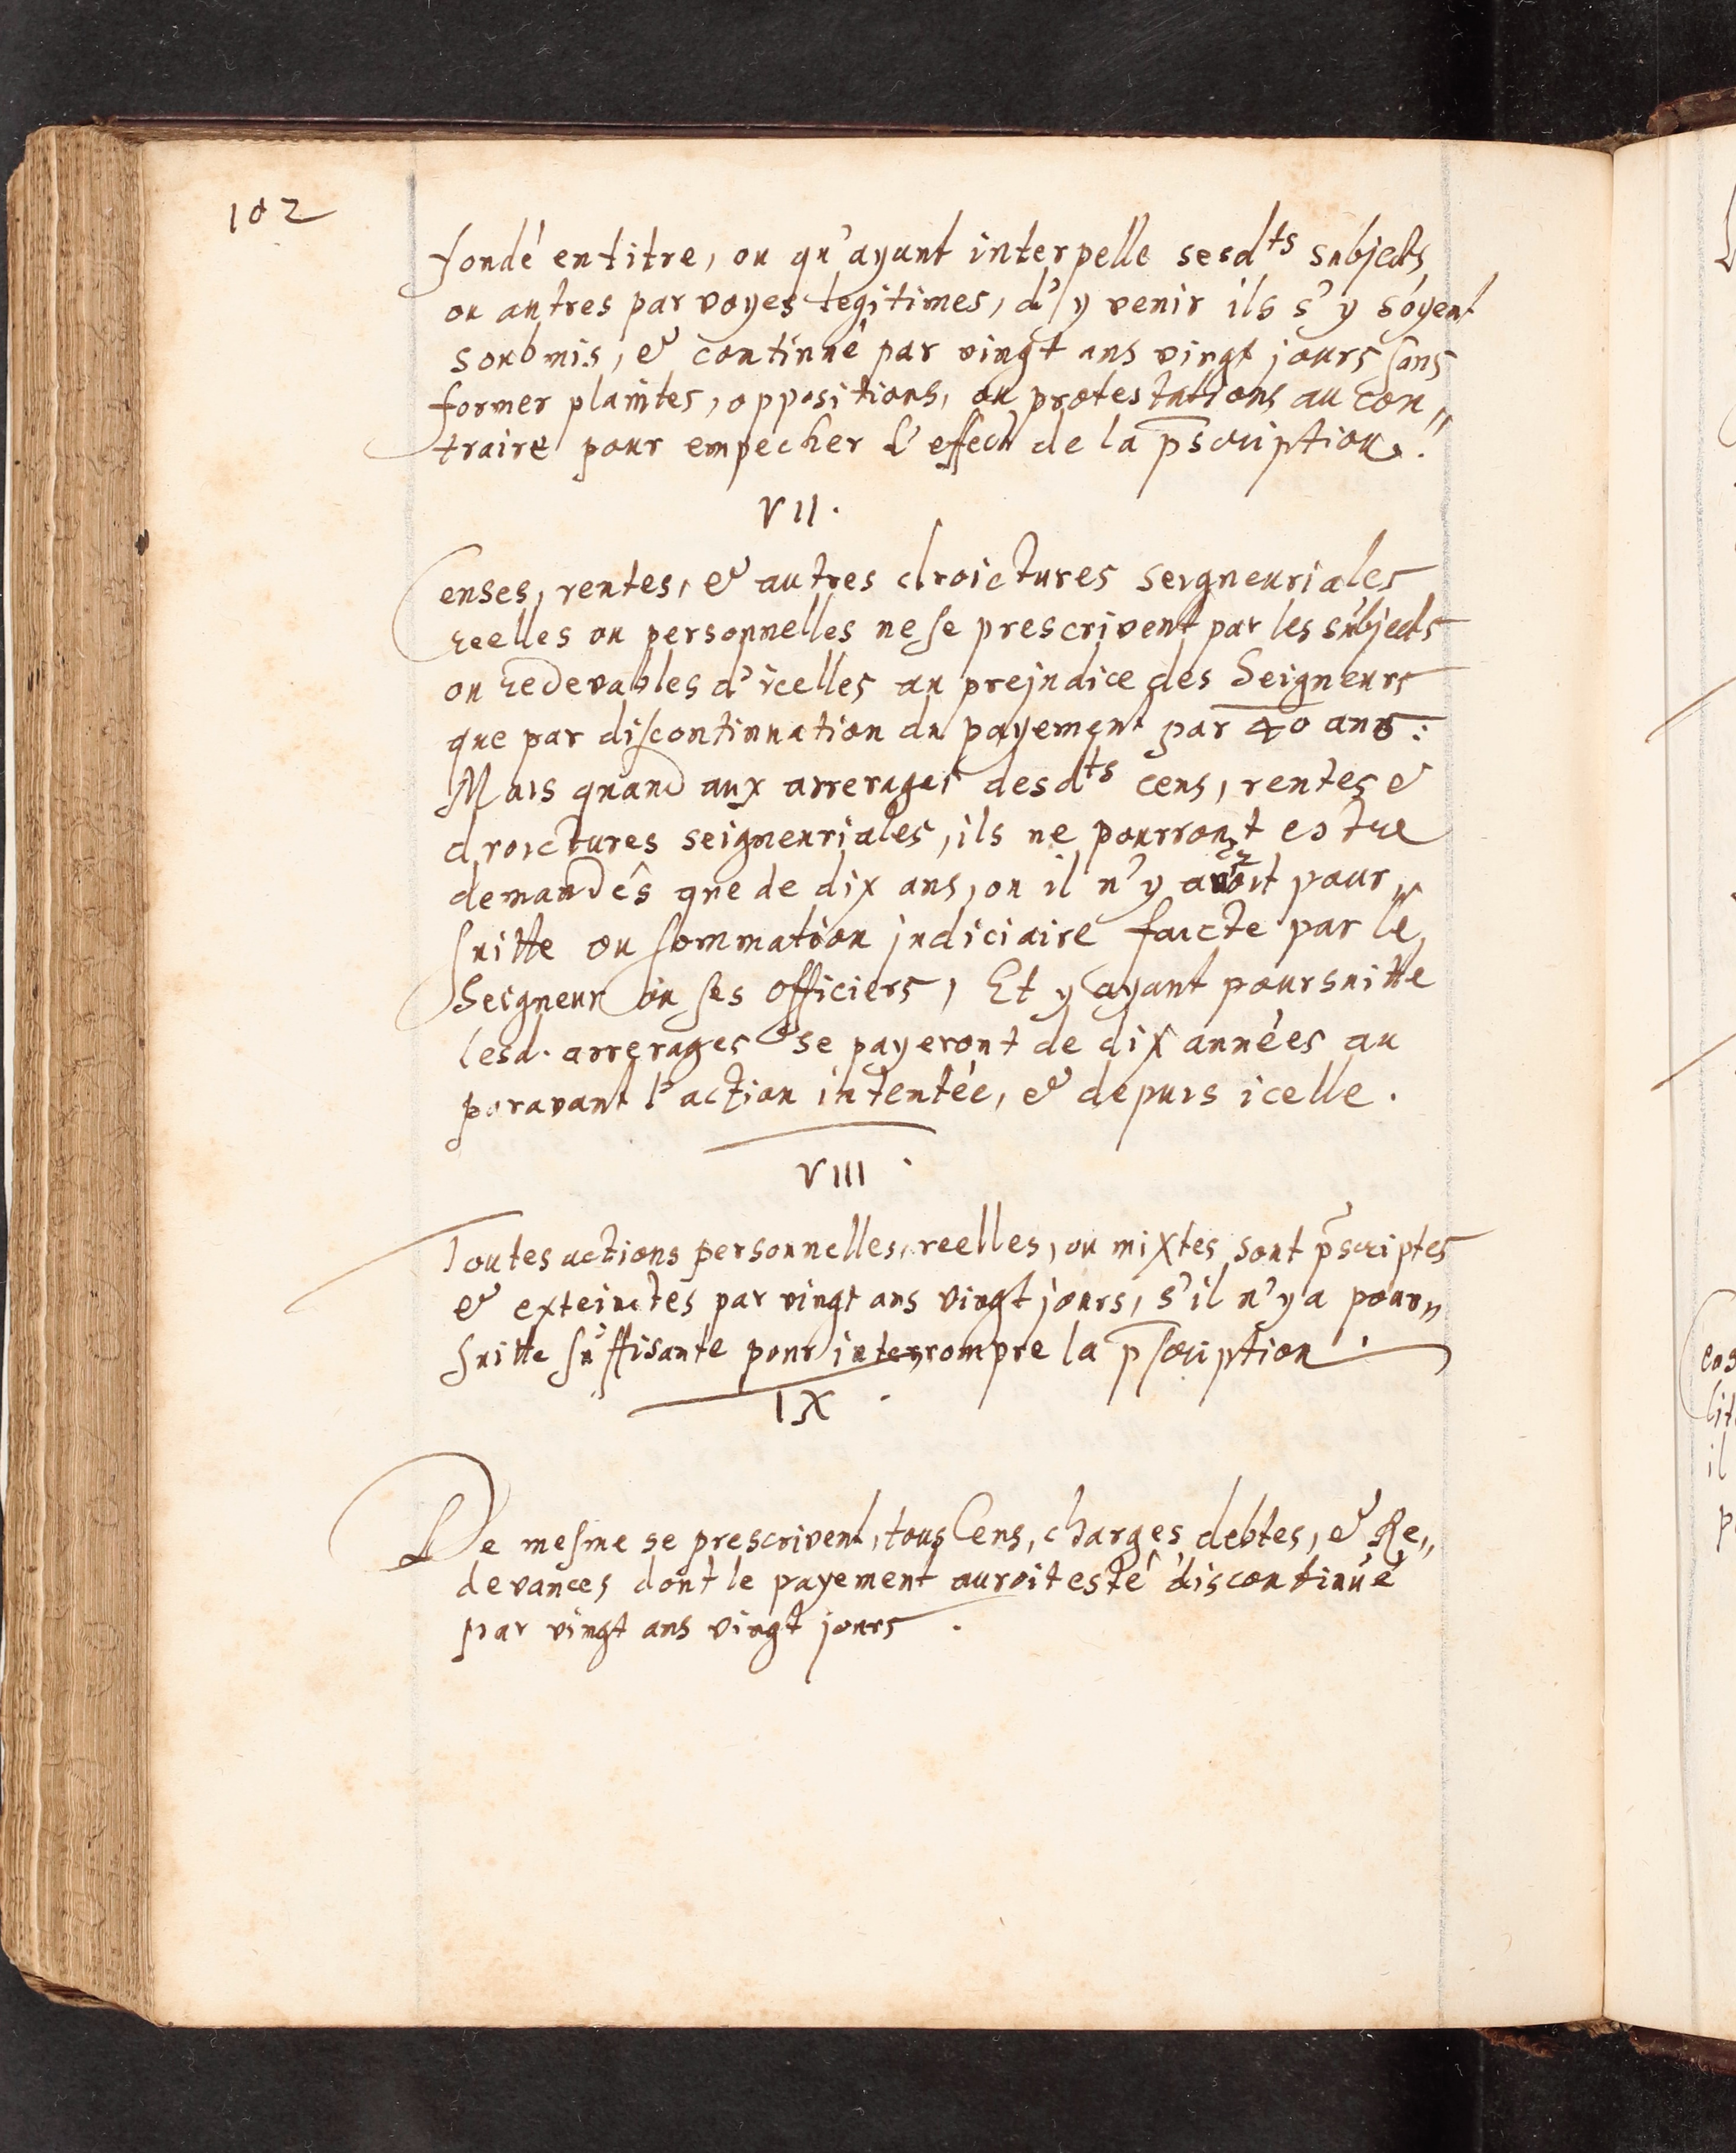 102
fondé en titre, ou qu'ayant interpelle sesdts subjects
ou autres par voyes legitimes, d'y venir ils s'y soyent
soubmis, & continué par vingt ans vingt jours sans
former plaintes, oppositions, ou protestations au con„
traire pour empecher l'effect de la p̄scription.
VII.
Censes, rentes, & autres droictures seigneuriales
reelles ou personnelles ne se prescrivent par les subjects
ou redevables d'icelles au prejudice des Seigneurs
que par discontinuation du payement par 40 ans:
Mais quand aux arrerages desdts cens, rentes &
droictures seigneuriales, ils ne pourront estre
demandés que de dix ans, ou il n'y auroit pour„
suitte ou sommation judiciaire faicte par le
Seigneur ou ses officiers, Et y ayant poursuitte
lesd. arrerages se payeront de dix années au
paravant l'action intentée, & depuis icelle.
VIII.
Toutes actions personnelles, reelles, ou mixtes sont p̄scriptes
& exteinctes par vingt ans vingt jours, s'il n'y a pour„
suitte suffisante pour interrompre la p̄scription.
IX.
De mesme se prescrivent, tous Cens, charges debtes, & Re„
devances dont le payement auroit esté discontinué
par vingt ans vingt jours.